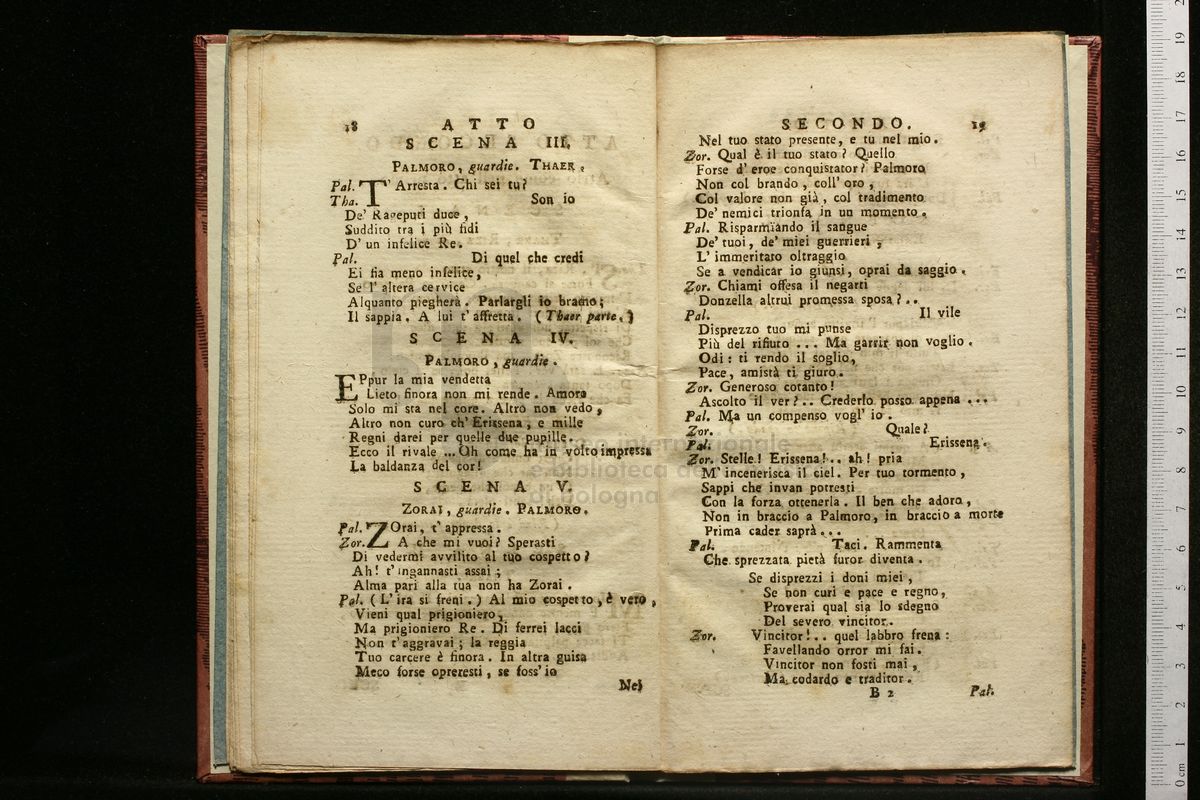 18 ATTO
SCENA III.
PALMORO, guardie. THAER.
Pal. T' Arresta. Chi sei tu?
Tha. Son io
De' Rageputi duce,
Suddito tra i più fidi
D' un infelice Re.
Pal. Di quel che credi
Ei fia meno infelice,
Se l' altera cervice
Alquanto piegherà. Parlargli io bramo;
Il sappia. A lui t' affretta. (Thaer parte.)
SCENA IV.
PALMORO, guardie.
EPpur la mia vendetta
Lieto finora non mi rende. Amore
Solo mi sta nel core. Altro non vedo,
Altro non curo ch' Erissena, e mille
Regni darei per quelle due pupille.
Ecco il rivale ... Oh come ha in volto impressa
La baldanza del cor!
SCENA V.
ZORAI, guardie. PALMORO.
Pal. ZOrai, t' appressa.
Zor. A che mi vuoi? Sperasti
Di vedermi avvilito al tuo cospetto?
Ah! t' ingannasti assai;
Alma pari alla tua non ha Zorai.
Pal. (L' ira si freni.) Al mio cospetto, è vero,
Vieni qual prigioniero,
Ma prigioniero Re. Di ferrei lacci
Non t' aggravai; la reggia
Tuo carcere è finora. In altra guisa
Meco forse opreresti, se foss' io
Nel
SECONDO. 19
Nel tuo stato presente, e tu nel mio.
Zor. Qual è il tuo stato? Quello
Forse d' eroe conquistator? Palmoro
Non col brando, coll' oro,
Col valore non già, col tradimento
De' nemici trionfa in un momento.
Pal. Risparmiando il sangue
De' tuoi, de' miei guerrieri,
L' immeritato oltraggio
Se a vendicar io giunsi, oprai da saggio.
Zor. Chiami offesa il negarti
Donzella altrui promessa sposa?..
Pal. Il vile
Disprezzo tuo mi punse
Più del rifiuto ... Ma garrir non voglio.
Odi: ti rendo il soglio,
Pace, amistà ti giuro.
Zor. Generoso cotanto!
Ascolto il ver?.. Crederlo posso appena ...
Pal. Ma un compenso vogl' io.
Zor. Quale?
Pal. Erissena.
Zor. Stelle! Erissena!.. ah! pria
M' incenerisca il ciel. Per tuo tormento,
Sappi che invan potresti
Con la forza ottenerla. Il ben che adoro,
Non in braccio a Palmoro, in braccio a morte
Prima cader saprà...
Pal. Taci. Rammenta
Che sprezzata pietà furor diventa.
Se disprezzi i doni miei,
Se non curi e pace e regno,
Proverai qual sia lo sdegno
Del severo vincitor.
Zor. Vincitor!.. quel labbro frena:
Favellando orror mi fai.
Vincitor non fosti mai,
Ma codardo e traditor.
B 2 Pal.